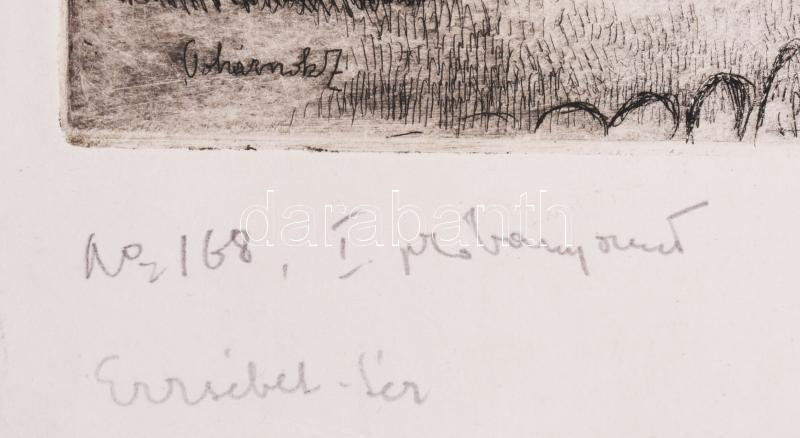 Vihárnok Z
darabanth
No 168, I próbanyomat
Erzsébet-tér